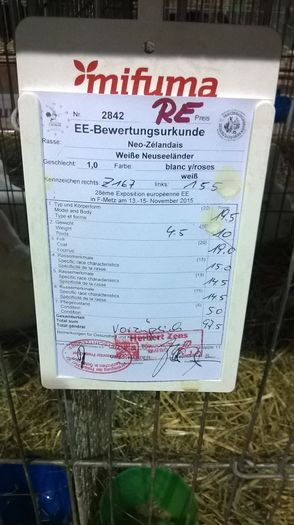 mifuma
Nr. 2842 RE Preis
EE-Bewertungsurkunde
Rasse: Neo-Zélandais
Weiße Neuseeländer
Geschlecht: 1,0 Farbe: blanc y/roses
weiß
Kennzeichen rechts: Z167 links: 155
28ème Exposition européenne EE
in F-Metz am 13.-15. November 2015
1. Typ und Körperform (20)
Model and Body 19.5
Type et forme
2. Gewicht
Weight 4.5 10
Poids
3. Fell (20)
Coat 19.0
Fourrure
4. Rassemerkmale (15)
Specific race characteristics 15.0
Spécificité de la race
5. Rassemerkmale (15)
Specific race characteristics 14.5
Spécificité de la race
6. Rassemerkmale (15)
Specific race characteristics 14.5
Spécificité de la race
7. Pflegezustand
Condition 5.0
Condition
Gesamtsumme
Total sum
Total général 97.5
Bemerkungen für Gesundheit vorzüglich
Herbert Zens